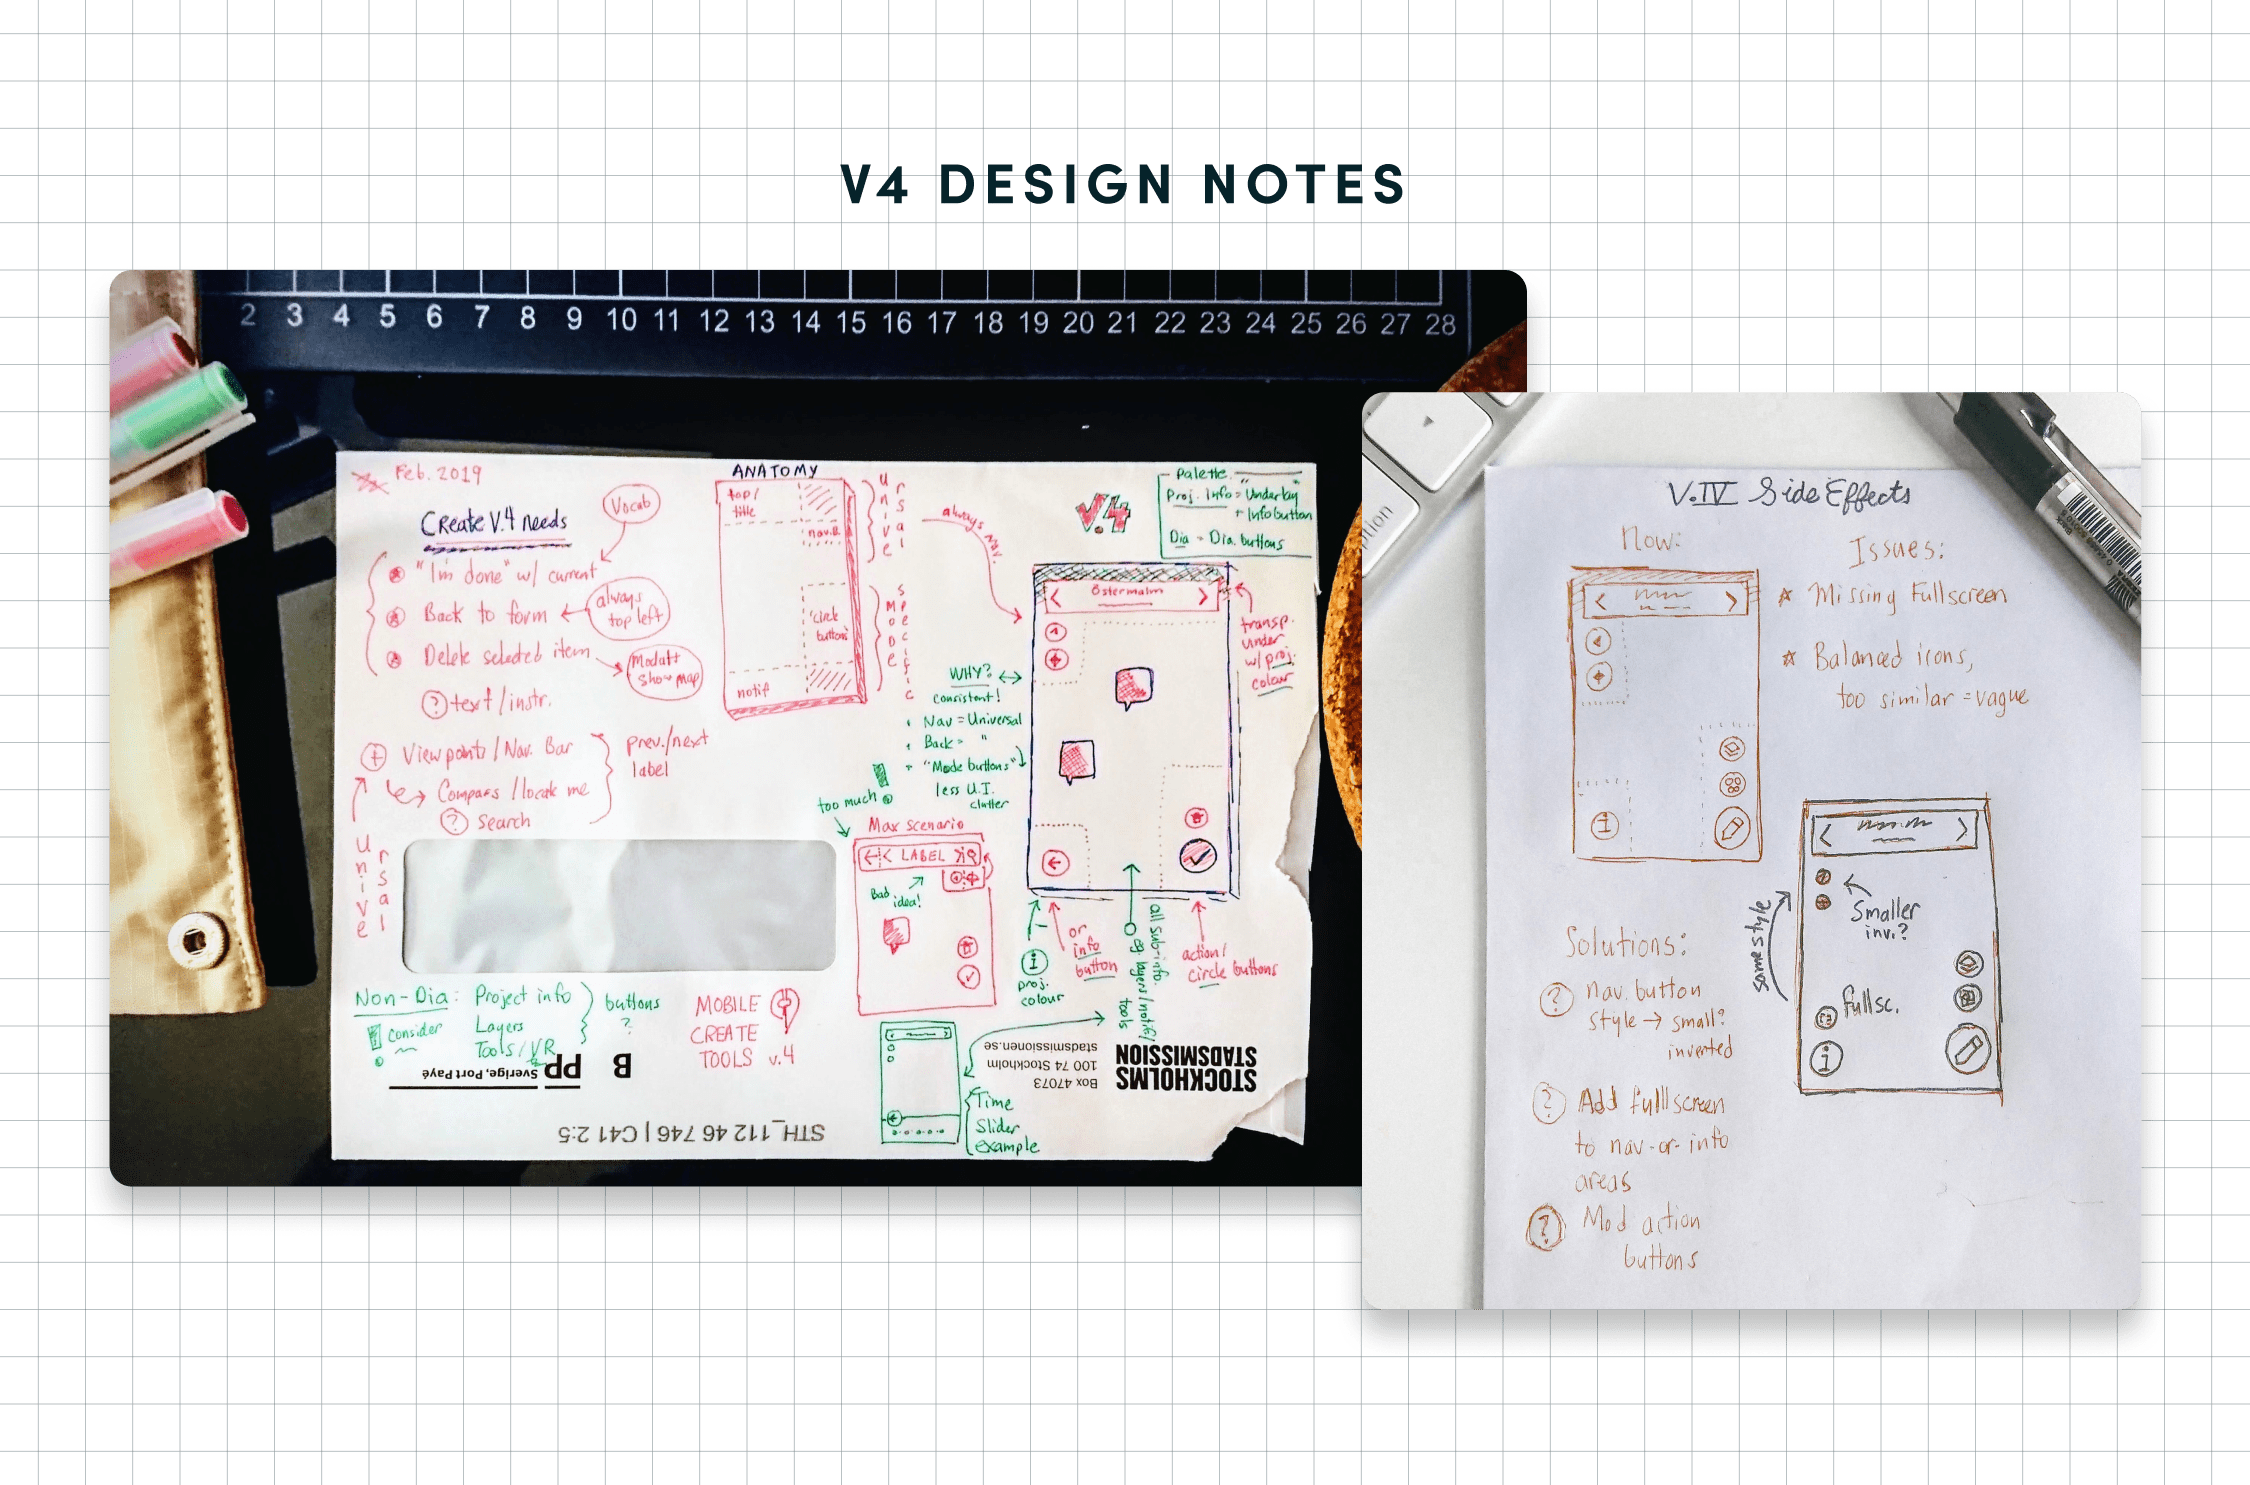 V4 DESIGN NOTES
2 3 4 5 6 7 8 9 10 11 12 13 14 15 16 17 18 19 20 21 22 23 24 25 26 27 28
Feb. 2019
Create V.4 needs
Vocab
"I'm done" w/ current
Back to form
always
top left
Delete selected item
Modal +
show map
? text/instr.
+ Viewpoints/Nav. Bar
Compass/locate me
? search
prev./next
label
Universal
ANATOMY
top/
title
nav.
"circle
buttons"
notif
Universal
MODE
Specific
always nav.
V.4
Palette
Proj. Info = "Underlay"
+ Infobutton
Dia = Dia. buttons
Östermalm
transp.
under
w/ proj.
colour
WHY?
consistent!
Nav = Universal
Back = "
"Mode buttons"
less U.I.
clutter
too much
Max scenario
LABEL
Bad
idea!
i
proj.
colour
or
info
button
all sub info.
eg layers/notif/
tools
action/
circle buttons
Non-Dia: Project info
Layers
Tools/VR
buttons
?
! consider
MOBILE
CREATE
TOOLS v.4
Time
Slider
example
STOCKHOLMS
STADSMISSION
Box 47073
100 74 Stockholm
stadsmissionen.se
B
PP
Sverige, Port Payé
STH_112 46 746 | C41 2:5
ption
V.IV Side Effects
Now:
i
Issues:
Missing Fullscreen
Balanced icons,
too similar = vague
Solutions:
? nav. button
style → small?
inverted
? Add fullscreen
to nav-or-info
areas
? Mod action
buttons
Smaller
inv.?
same style
fullsc.
i